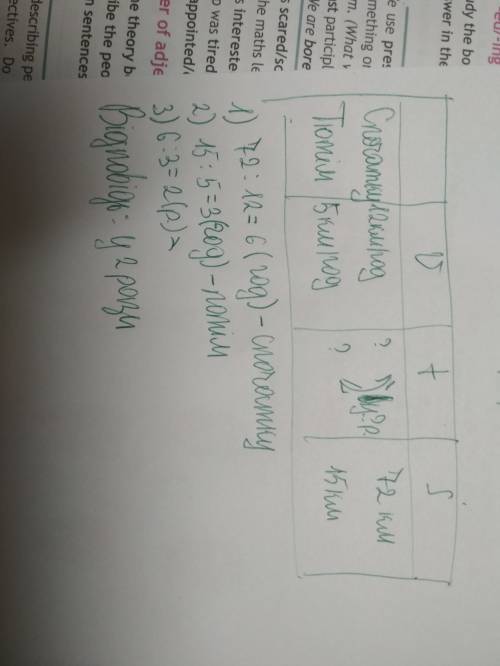 V t S
Спочатку 12 км/год ? у ? р. 72 км
Потім 5 км/год ? 15 км
1) 72 : 12 = 6 (год) - спочатку
2) 15 : 5 = 3 (год) - потім
3) 6 : 3 = 2 (р) >
Відповідь: у 2 рази
udy the bo
swer in the
e use pres
mething or
m. (What v
ast particip
We are bore
he maths le
s intereste
s scared/sc
o was tired
appointed/
er of adje
he theory b
ribe the peo
n sentences
describing pe
ectives. Do